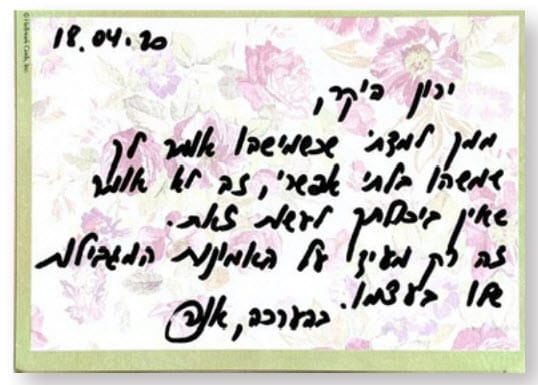 © Hallmark Cards, Inc.
18.04.20
ירון היקר,
ממך למדתי שכשמישהו אומר לך
שמשהו בלתי אפשרי, זה לא אומר
שאין ביכולתך לעשות זאת.
זה רק מעיד על האמונות המגבילות
שלו בעצמו.
בהערכה,